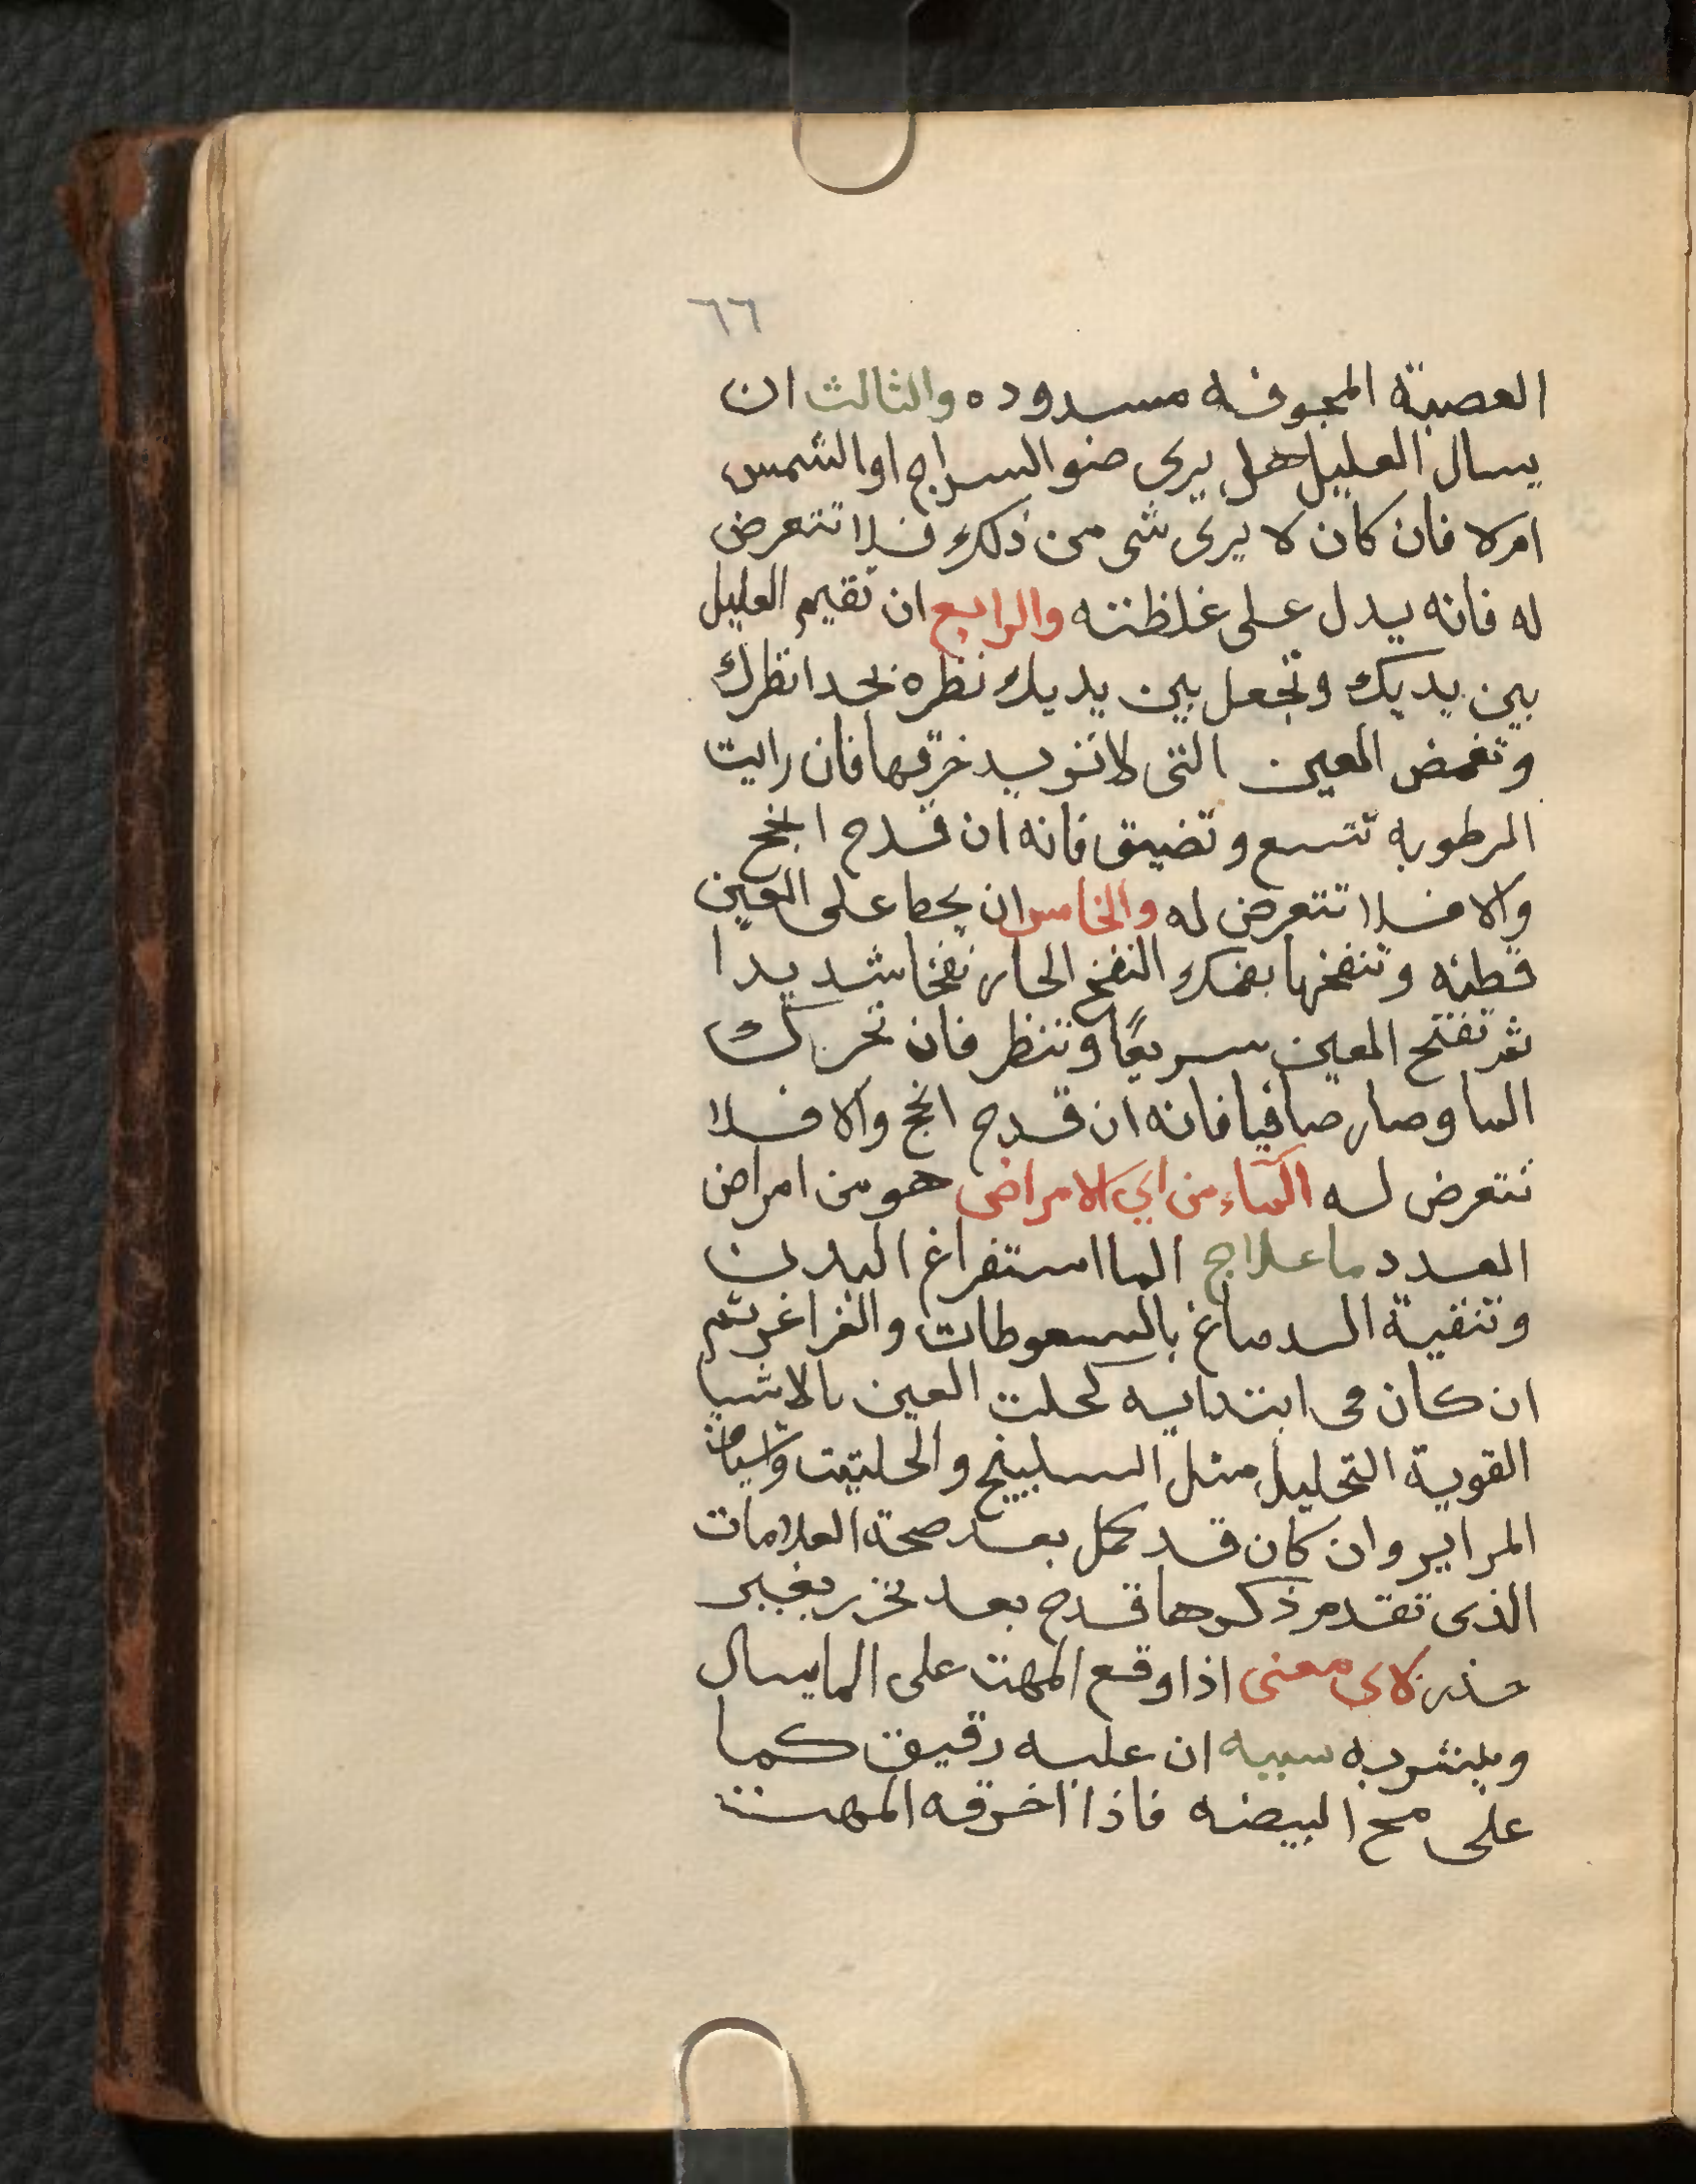 ٦٦
العصبة المجوفه مسدوده والثالث ان
يسال العليل هل يرى ضو السراج او الشمس
ام لا فان كان لا يرى شى من ذلك فلا تتعرض
له فانه يدل على غلظته والرابع ان تقيم العليل
بين يديك وتجعل بين يديك نظره بحدا نظرك
وتغمض العين التى لا تريد خرقها فان رايت
الرطوبه تتسع وتضيق فانه ان قدح انجح
والا فلا تتعرض له والخامس ان يحط على العين
قطنه وتنفخها بفمك النفخ الحار نفخا شديدا
ثم تفتح العين سريعًا وتنظر فان تحرك
الما وصار صافيا فانه ان قدح انجح والا فلا
تتعرض له الماء من اي الامراض هو من امراض
العدد ما علاج الما استفراغ البدن
وتنقية الدماغ بالسعوطات والغراغر ثم
ان كان فى ابتدايه كحلت العين بالاشيا
القوية التحليل مثل السكبينج والحلتيت وشياف
المراير وان كان قد كمل بعد صحة العلامات
الذى تقدم ذكرها قدح بعد تحزر بغير
حذر لاى معنى اذا وقع المهت على الما يسال
وينشربه سببه ان عليه رقيق كما
على مح البيضه فاذا اخرقه المهت